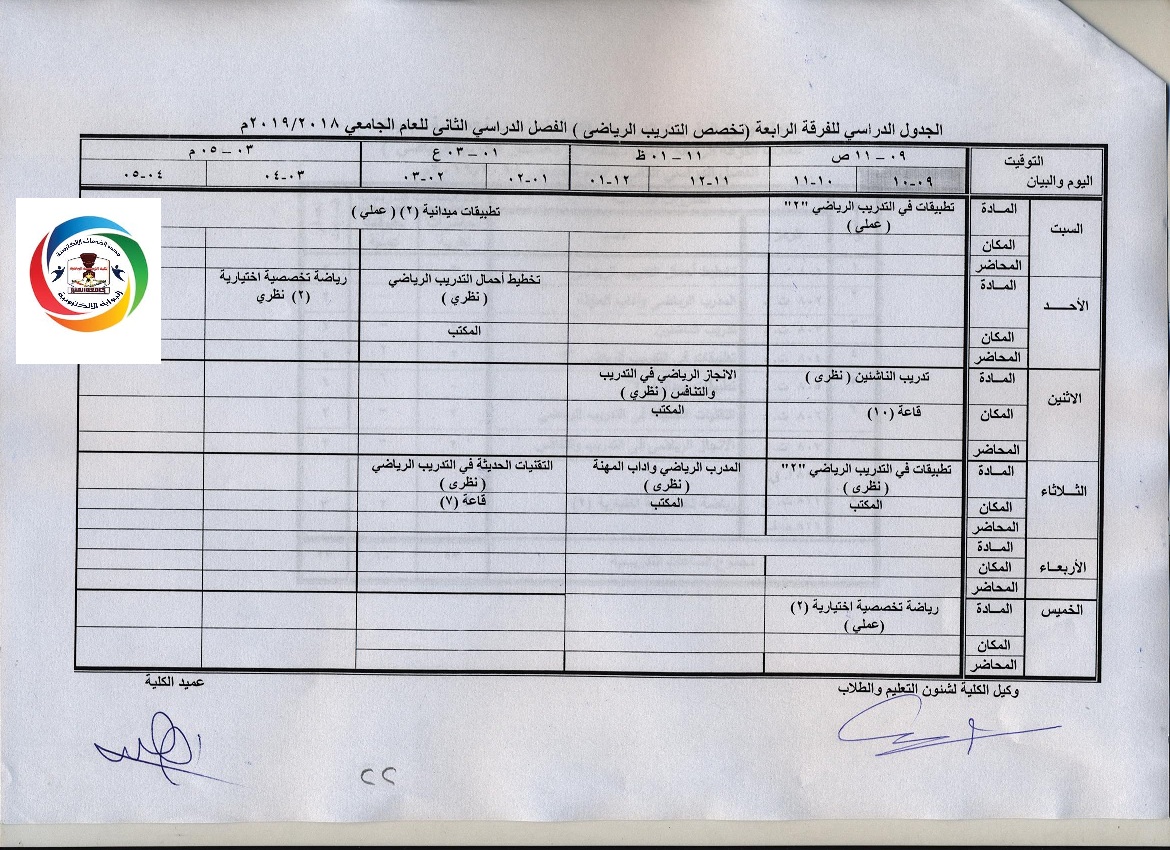 الجدول الدراسي للفرقة الرابعة (تخصص التدريب الرياضى ) الفصل الدراسي الثانى للعام الجامعي ٢٠١٩/٢٠١٨م
التوقيت
اليوم والبيان
٠٩ – ١١ ص
١١ – ٠١ ظ
٠١ – ٠٣ ع
٠٣ – ٠٥ م
٠٩-١٠
١٠-١١
١١-١٢
١٢-٠١
٠١-٠٢
٠٢-٠٣
٠٣-٠٤
٠٤-٠٥
السبت
المـادة
تطبيقات في التدريب الرياضي "٢"
( عملي )
تطبيقات ميدانية (٢) ( عملي )
المكان
المحاضر
الأحــــد
المـادة
تخطيط أحمال التدريب الرياضي
( نظري )
رياضة تخصصية اختيارية
(٢) نظري
المكان
المكتب
المحاضر
الاثنين
المـادة
تدريب الناشئين ( نظرى )
الانجاز الرياضي في التدريب
والتنافس ( نظري )
المكان
قاعة (١٠)
المكتب
المحاضر
الثـلاثاء
المـادة
تطبيقات في التدريب الرياضي "٢"
( نظرى )
المدرب الرياضي واداب المهنة
( نظرى )
التقنيات الحديثة في التدريب الرياضي
( نظرى )
المكان
المكتب
المكتب
قاعة (٧)
المحاضر
الأربعـاء
المـادة
المكان
المحاضر
الخميس
المـادة
رياضة تخصصية اختيارية (٢)
(عملي )
المكان
المحاضر
وكيل الكلية لشئون التعليم والطلاب
عميد الكلية
٢٢
البوابة الإلكترونية